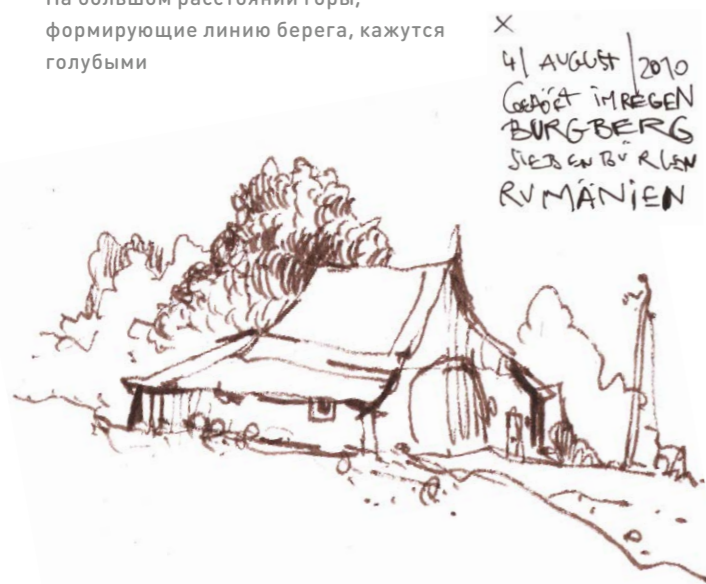 На большом расстоянии горы,
формирующие линию берега, кажутся
голубыми
X
4/ AUGUST /2010
IM REGEN
BURGBERG
SIEBENBÜRGEN
RUMÄNIEN